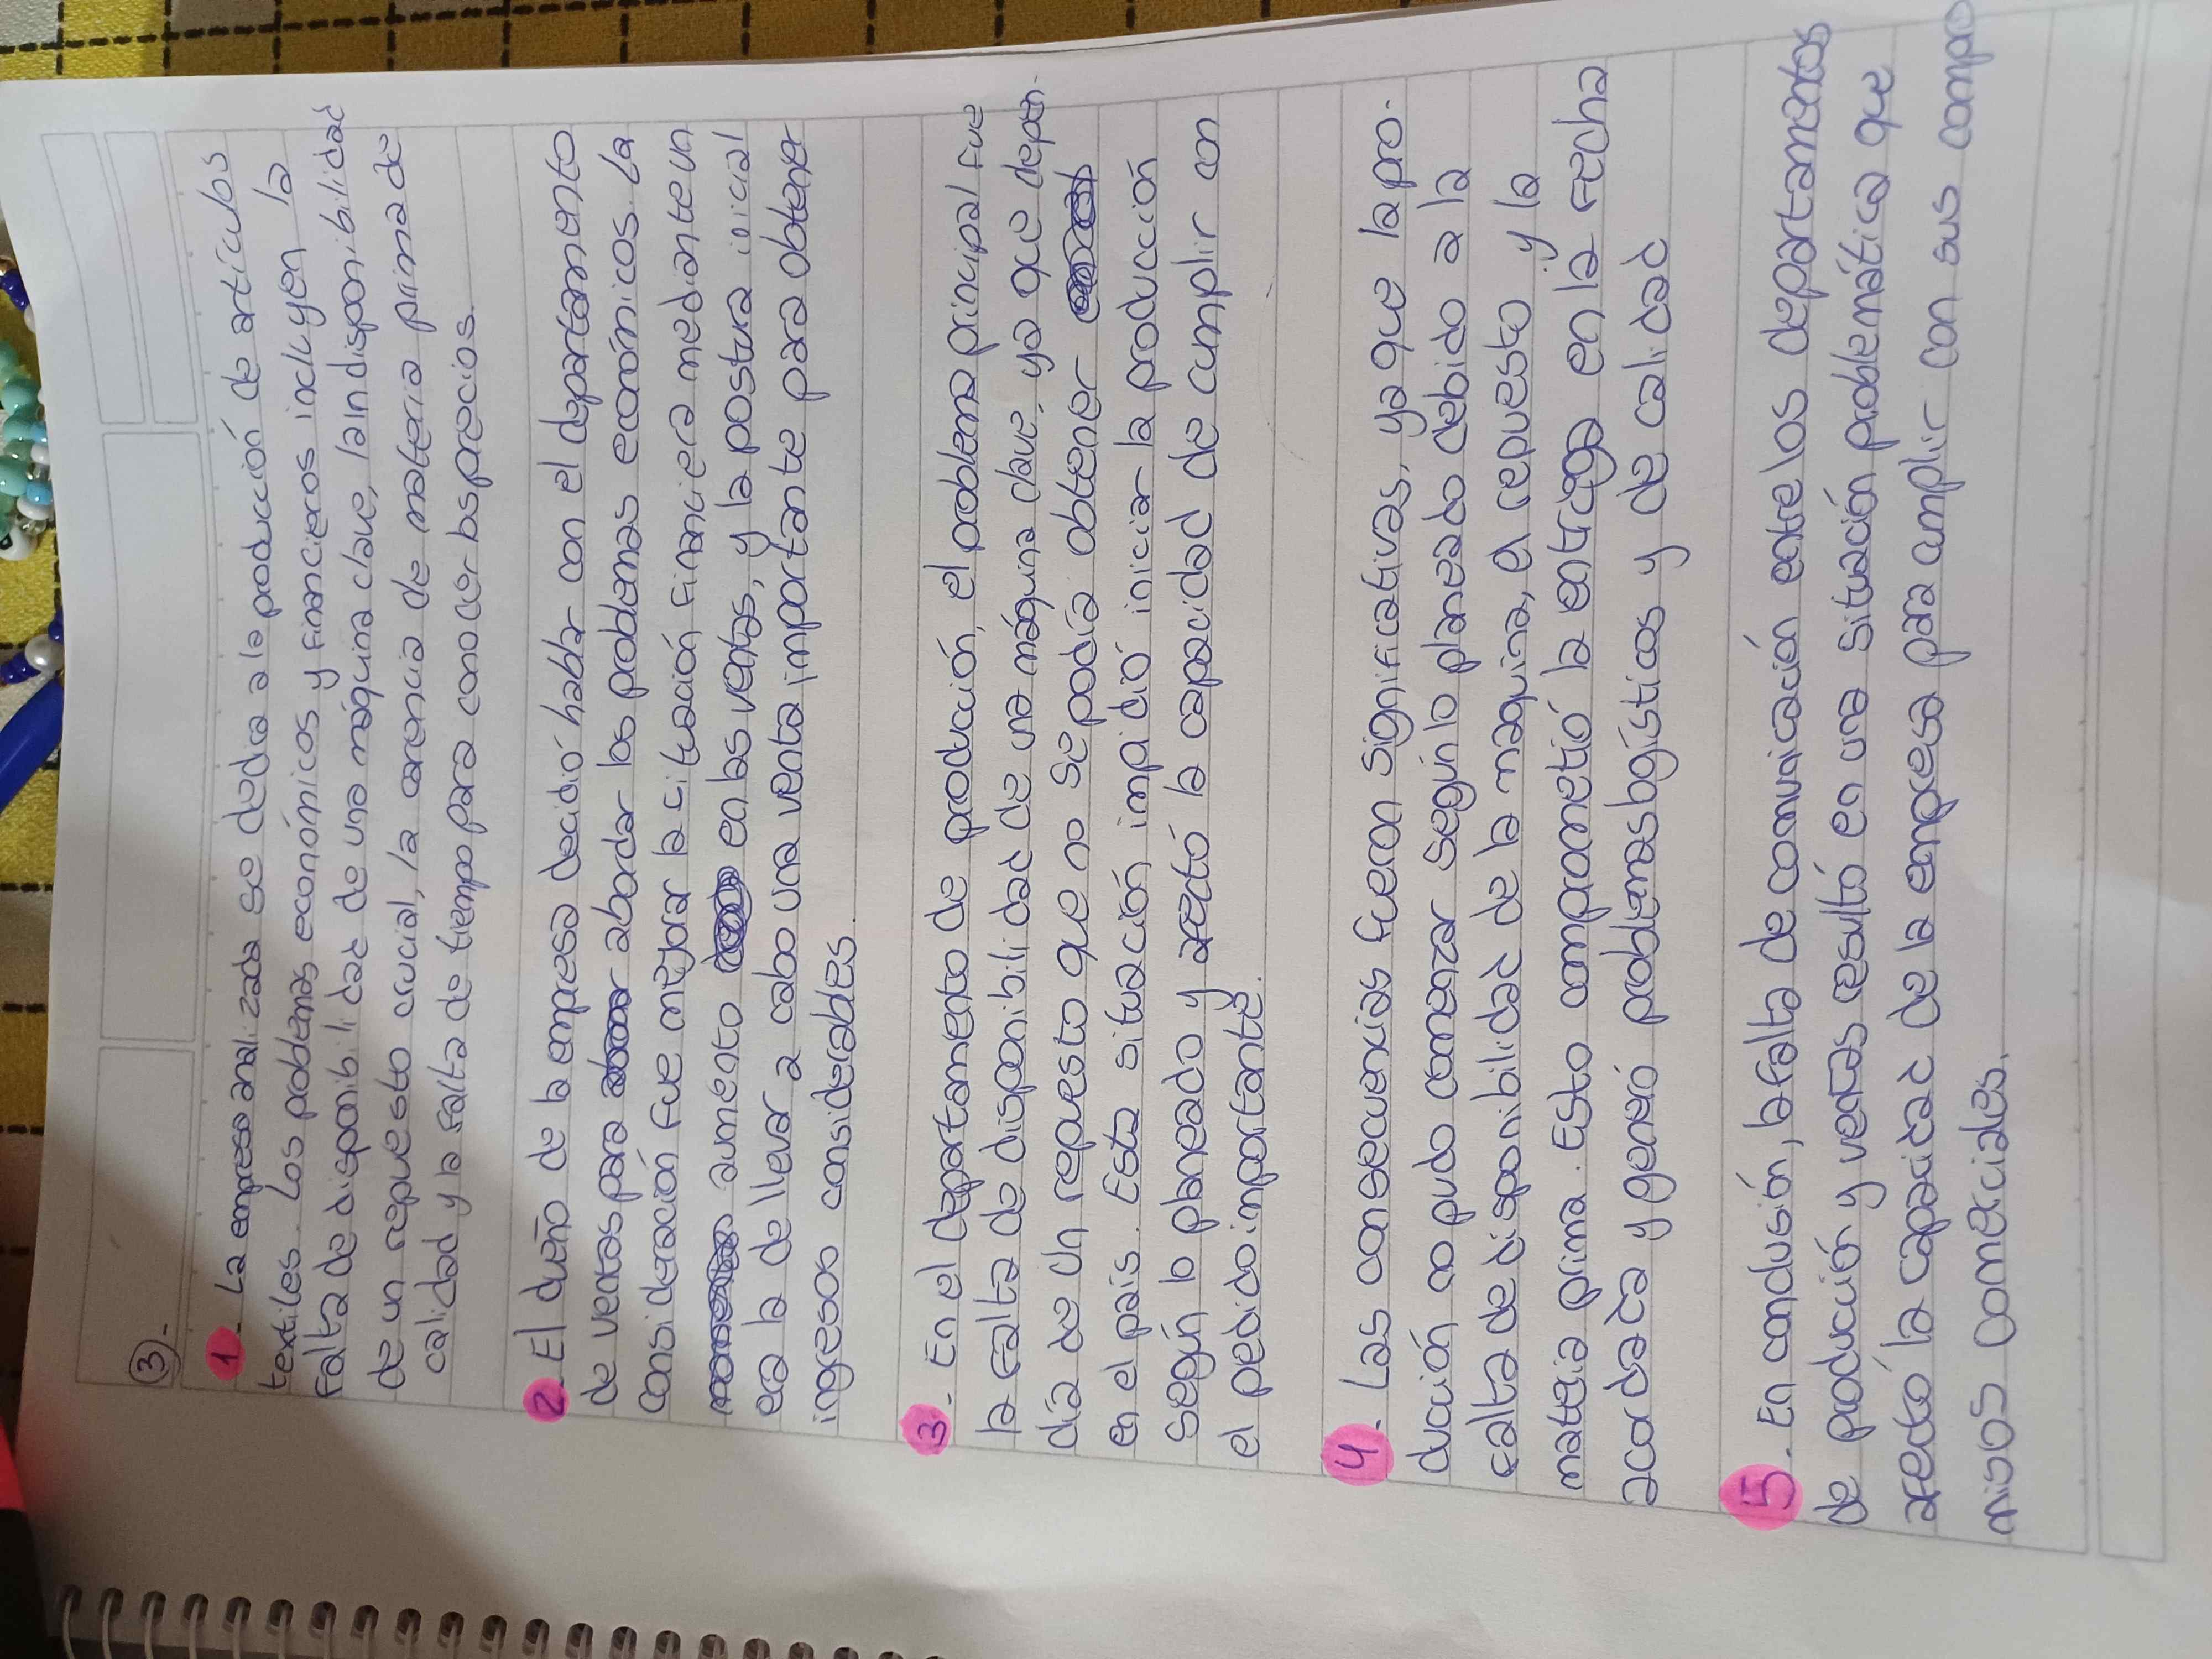 3)-
1- La empresa analizada se dedica a la producción de artículos
textiles. Los problemas económicos y financieros incluyen la
falta de disponibilidad de una máquina clave, la indisponibilidad
de un repuesto crucial, la carencia de materia prima de
calidad y la falta de tiempo para conocer los precios.
2- El dueño de la empresa decidió hablar con el departamento
de ventas para abordar los problemas económicos. La
consideración fue mejorar la cituación financiera mediante un
aumento en las ventas, y la postura inicial
era la de llevar a cabo una venta importante para obtener
ingresos considerables.
3- En el departamento de producción, el problema principal fue
la falta de disponibilidad de una máquina clave, ya que depen-
día de un repuesto que no se podía obtener
en el país. Esta situación impidió iniciar la producción
según lo planeado y afectó la capacidad de cumplir con
el pedido importante.
4- Las consecuencias fueron significativas, ya que la pro-
ducción no pudo comenzar según lo planeado debido a la
falta de disponibilidad de la maquina, el repuesto y la
materia prima. Esto comprometió la entrega en la fecha
acordada y generó problemas logísticos y de calidad
5- En conclusión, la falta de comunicación entre los departamentos
de producción y ventas resultó en una situación problemática que
afectó la capacidad de la empresa para cumplir con sus compro
misos comerciales.